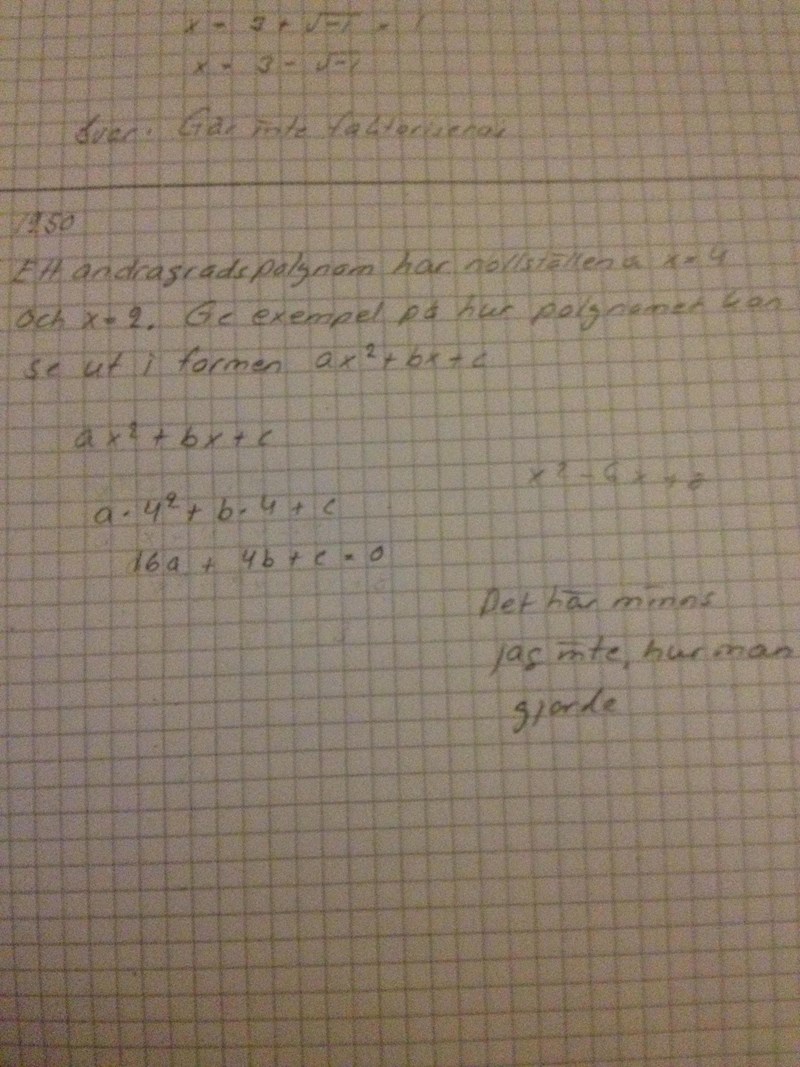 x = 3 + √-1
x = 3 - √-1
Svar: Går inte faktoriseras
1250
Ett andragradspolynom har nollställena x=4
och x=2. Ge exempel på hur polynomet kan
se ut i formen ax²+bx+c
ax²+bx+c
x²-6x+8
a·4²+b·4+c
16a + 4b+c=0
Det här minns
jag inte, hur man
gjorde